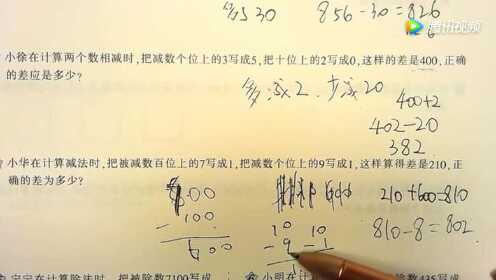 530 856-30=826
腾讯视频
小徐在计算两个数相减时,把减数个位上的3写成5,把十位上的2写成0,这样的差是400,正确
的差应是多少?
多减2,少减20
400+2
402-20
382
小华在计算减法时,把被减数百位上的7写成1,把减数个位上的9写成1,这样算得差是210,正
确的差为多少?
210+600=810
810-8=802
- 100
600
10 10
-9 -1
被减数7100写成
小明在计算